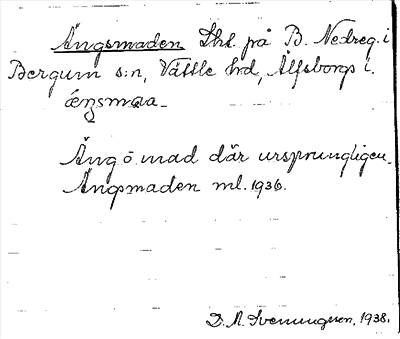 Ängsmaden Shl. på B. Nedreg. i
Bergum s:n, Vättle hrd, Älfsborgs l.
ængsmaa
Äng o. mad där ursprungligen.
Ängsmaden ml. 1936.
D. A. Svenungsson, 1938.